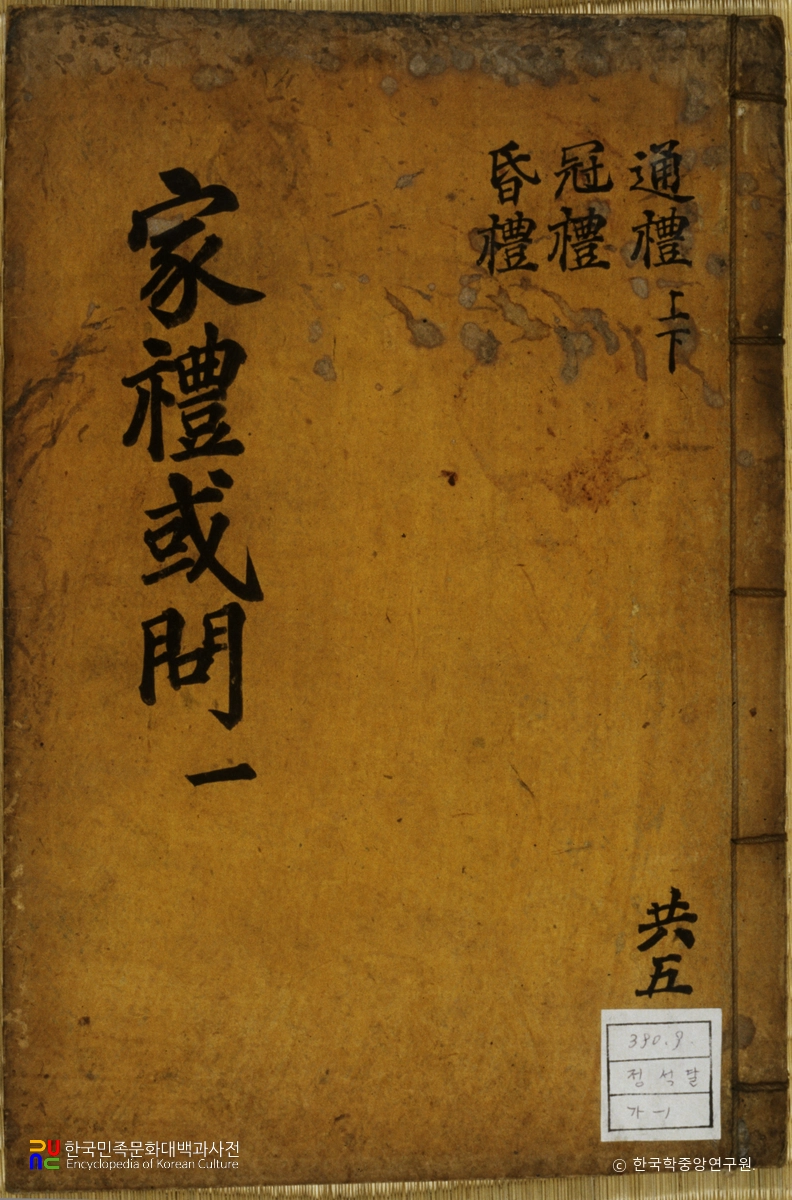 通禮 上下
冠禮
昏禮
家禮或問 一
共五
390.9
정석달
가-1
한국민족문화대백과사전
Encyclopedia of Korean Culture
© 한국학중앙연구원